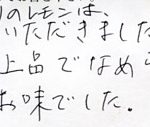 りのレモンは、
いただきました
上品でなめら
お味でした。